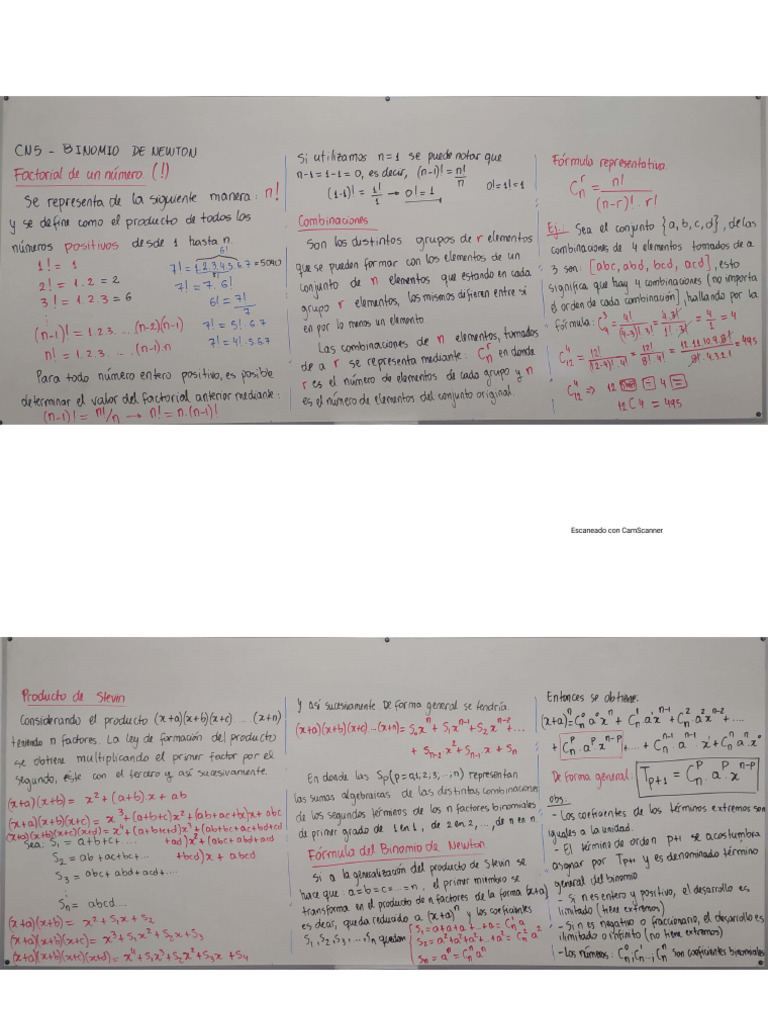 CN5 - BINOMIO DE NEWTON
Factorial de un número (!)
Se representa de la siguiente manera: n!
y se define como el producto de todos los
números positivos desde 1 hasta n.
1! = 1
2! = 1.2 = 2
3! = 1.2.3 = 6
⋮
(n-1)! = 1.2.3. ... (n-2)(n-1)
n! = 1.2.3. ... (n-1).n
6!
7! = 1.2.3.4.5.6.7 = 5040
7! = 7.6!
6! = 7!/7
7! = 5!.6.7
7! = 4!.5.6.7
Para todo número entero positivo, es posible
determinar el valor del factorial anterior mediante:
(n-1)! = n!/n → n! = n.(n-1)!
Si utilizamos n=1 se puede notar que
n-1=1-1=0, es decir, (n-1)! = n!/n
(1-1)! = 1!/1 → 0! = 1 0! = 1! = 1
Combinaciones
Son los distintos grupos de r elementos
que se pueden formar con los elementos de un
conjunto de n elementos que estando en cada
grupo r elementos, los mismos difieren entre si
en por lo menos un elemento.
Las combinaciones de n elementos, tomados
de a r se representa mediante: C_n^r en donde
r es el número de elementos de cada grupo y n
es el número de elementos del conjunto original.
Fórmula representativa.
C_n^r = n!/((n-r)!.r!)
Ej: Sea el conjunto {a,b,c,d}, de las
combinaciones de 4 elementos tomados de a
3 son: [abc, abd, bcd, acd], esto
significa que hay 4 combinaciones (no importa
el orden de cada combinación), hallando por la
fórmula: C_4^3 = 4!/((4-3)!.3!) = 4.3!/(1!.3!) = 4/1 = 4
C_12^4 = 12!/((12-4)!.4!) = 12!/(8!.4!) = 12.11.10.9.8!/(8!.4.3.2.1) = 495
C_12^4 ⇒ 12 4 =
12C4 = 495
Escaneado con CamScanner
Producto de Stevin
Considerando el producto (x+a)(x+b)(x+c)....(x+n)
teniendo n factores. La ley de formación del producto
se obtiene multiplicando el primer factor por el
segundo, éste con el tercero y así sucesivamente.
(x+a)(x+b) = x²+(a+b).x+ab
(x+a)(x+b)(x+c) = x³+(a+b+c)x²+(ab+ac+bc)x+abc
(x+a)(x+b)(x+c)(x+d) = x⁴+(a+b+c+d)x³+(ab+bc+ac+bd+cd
+ad)x²+(abc+abd+acd
+bcd)x+abcd
Sea: S₁ = a+b+c+....
S₂ = ab+ac+bc+...
S₃ = abc+abd+acd+....
⋮
Sn = abcd....
(x+a)(x+b) = x²+S₁x+S₂
(x+a)(x+b)(x+c) = x³+S₁x²+S₂x+S₃
(x+a)(x+b)(x+c)(x+d) = x⁴+S₁x³+S₂x²+S₃x+S₄
Y así sucesivamente. De forma general se tendría.
(x+a)(x+b)(x+c)...(x+n) = S₀xⁿ+S₁xⁿ⁻¹+S₂xⁿ⁻²+...
+S_{n-2}x²+S_{n-1}.x+Sn
En donde las Sp(p=0,1,2,3,...,n) representan
las sumas algebraicas de las distintas combinaciones
de los segundos términos de los n factores binomiales
de primer grado de 1 en 1, de 2 en 2, ..., de n en n.
Fórmula del Binomio de Newton
Si a la generalización del producto de Stevin se
hace que: a=b=c=...=n, el primer miembro se
transforma en el producto de n factores de la forma (x+a)
es decir, queda reducido a (x+a)ⁿ y los coeficientes
S₁,S₂,S₃,...,Sn quedan
S₁ = a+a+a+...+a = C_n^1 a
S₂ = a²+a²+a²+...+a² = C_n^2 a²
Sn = aⁿ = C_n^n aⁿ
Entonces se obtiene:
(x+a)ⁿ = C_n^0 a⁰xⁿ + C_n^1 a¹xⁿ⁻¹ + C_n^2 a²xⁿ⁻² + ....
+ C_n^p.a^p x^{n-p} + ... + C_n^{n-1}.aⁿ⁻¹.x¹ + C_n^n aⁿ.x⁰
De forma general: T_{p+1} = C_n^p.a^p.x^{n-p}
obs:
- Los coeficientes de los términos extremos son
iguales a la unidad.
- El término de orden p+1 se acostumbra
asignar por T_{p+1} y es denominado término
general del binomio
- Si n es entero y positivo, el desarrollo es
limitado (tiene extremos)
- Si n es negativo o fraccionario, el desarrollo es
ilimitado o infinito (no tiene extremos)
- Los números: C_n^0, C_n^1,..., C_n^n son coeficientes binomiales